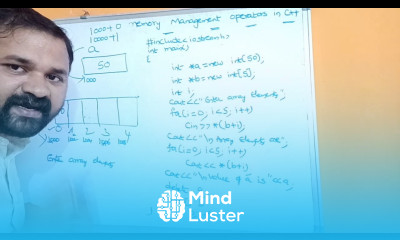 1000+0 memory Management operators in C++
1000+1
a
50
1000
#include<iostream.h>
int main()
{
int *a=new int(50);
int *b=new int[5];
int i;
Cout<<"Enter array elements";
for(i=0; i<5; i++)
Cin>>*(b+i);
Cout<<"\n Array elements are";
for(i=0; i<5; i++)
Cout<<*(b+i)
Cout<<"\n value of a is"<<*a;
0 1 2 3 4
Enter array elements
Mind
Luster